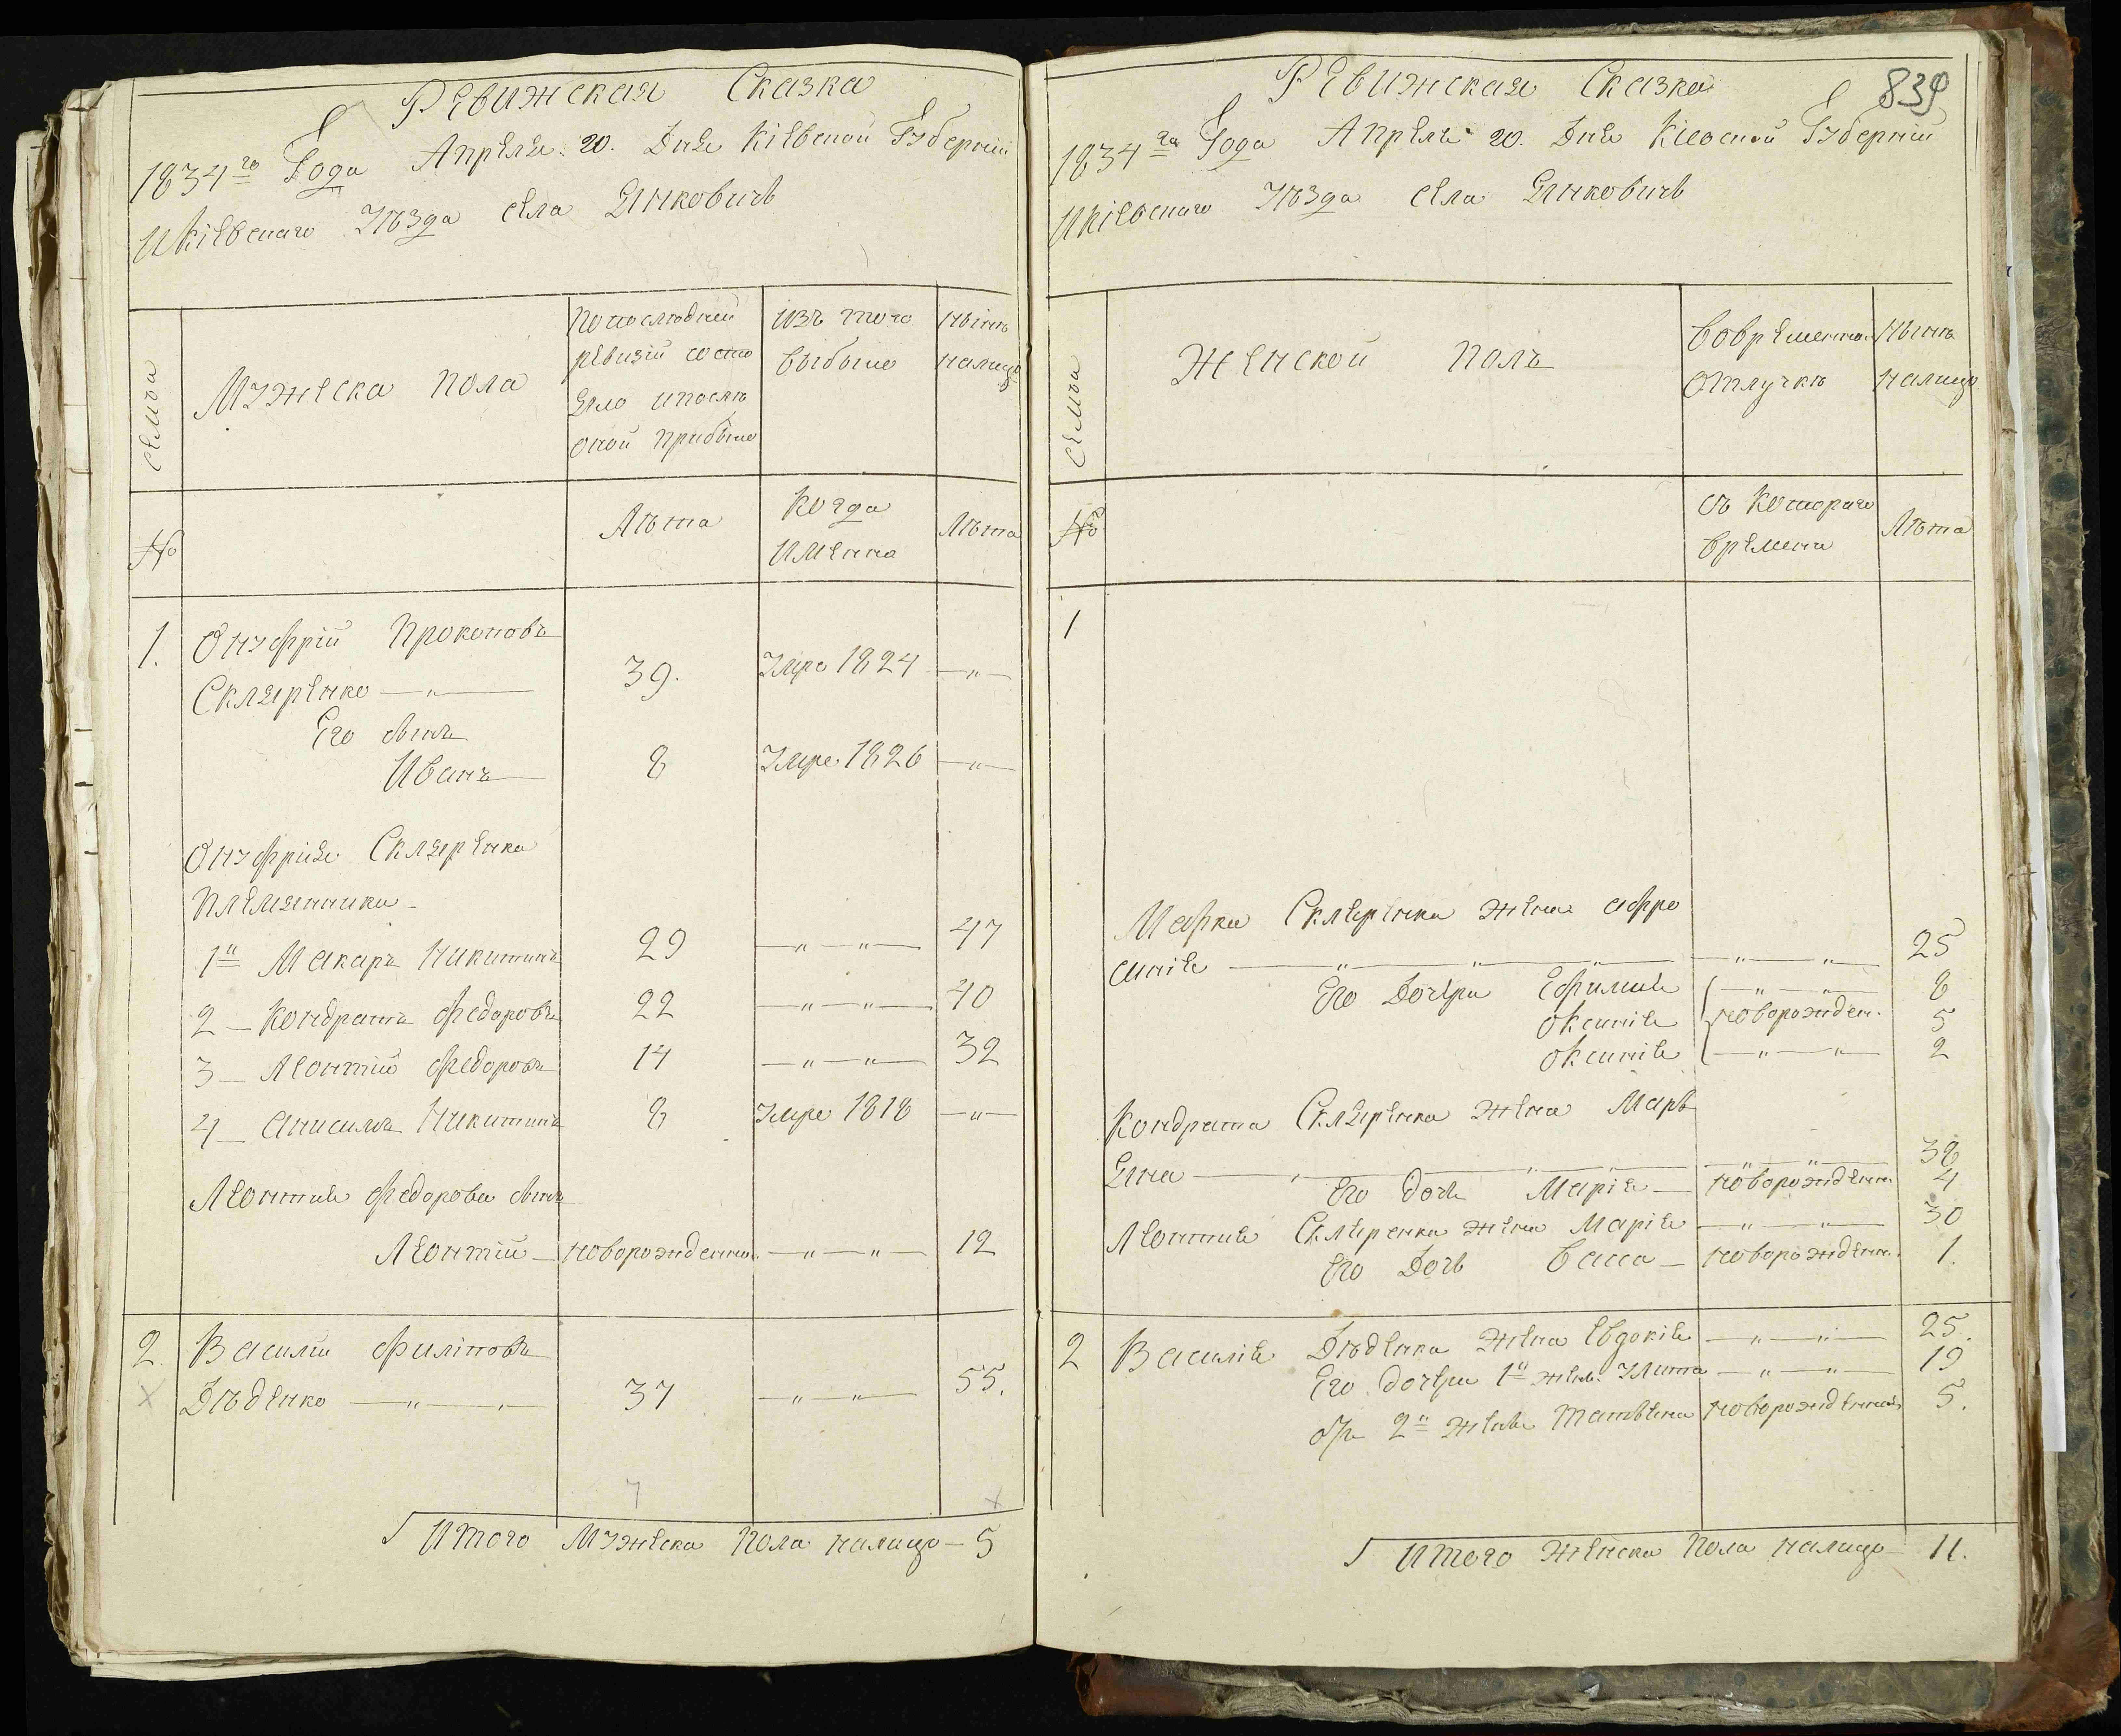 Ревижская Сказка
1834го Года Апреля 20. Дня Кіевской Губерніи
И Кіевскаго Уѣзда села Янковичь
семьи
Мужеска пола
По последней
ревизіи состо
яло и после
оной прибыло
изъ того
выбыло
ныне
налицо
№
Лѣта
Когда
имянно
Лѣта
1. Онуфрій Прокоповъ
Скляренко —„— 39. Умре 1824 —„—
Его сынъ
Иванъ 8 Умре 1826 —„—
Онуфрія Скляренка
племянники
1й Макаръ Никитинъ 29 —„—„— 47
2 — Кондратъ Федоровъ 22 —„—„— 40
3 — Леонтій Федоровъ 14 —„—„— 32
4 — Анисимъ Никитинъ 8 Умре 1818 —„—
Леонтия Федорова сынъ
Леонтій — новорожденной —„—„— 12
2. Василій Филіповъ
Дѣденко —„— 37 —„—„— 55.
7
Итого Мужеска пола налицо — 5
839
Ревижская Сказка
1834га Года Апреля 20. Дня Кіевской Губерніи
И Кіевскаго Уѣзда села Янковичь
семьи
Женской полъ
Во временной
отлучке
Ныне
налицо
№
съ котораго
времени
Лѣта
1
Скляренка жена афро
синія —„—„—„— —„—„— 25
Его Дочери Ефимия —„—„— 8
оксинія новорожден. 5
оксинія —„—„— 2
Кондрата Скляренка жена Марь
яна — —„—„— 38
Его дочь Марія — новорожденн. 4
Леонтия Скляренка жена Марія —„—„— 30
Его Дочь Васса — новорожденн. 1.
2 Василія Дѣденка жена Евдокія —„—„— 25.
Его дочери 1й жены Улита —„—„— 19
2й жены Татьяна новорожденная 5.
Итого женска пола налицо 11.